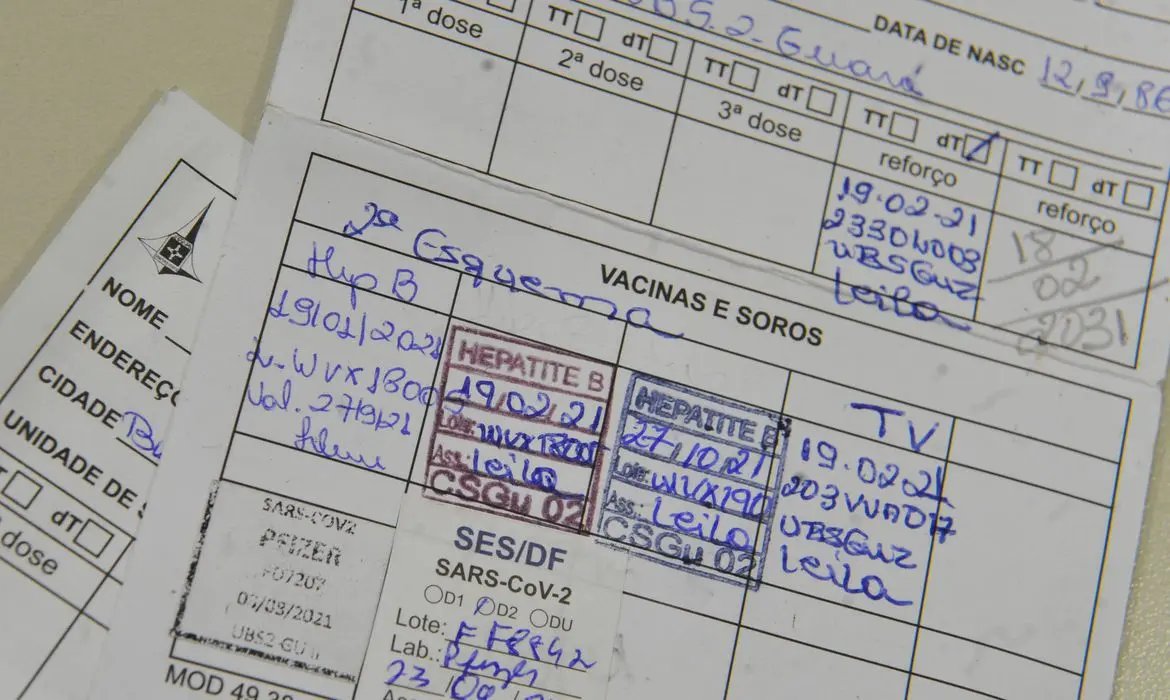 UBS.2-Guará
DATA DE NASC 12,9,86
1ª dose
TT dT
2ª dose
TT dT
3ª dose
TT dT
reforço
19.02.21
UBSGU2
Leila
TT dT
reforço
18
02
2031
VACINAS E SOROS
2ª Esquema
Hep B
19/01/2021
Val. 27/9/21
HEPATITE B
19/02/21
Lote:
Ass.: Leila
CSGu 02
HEPATITE B
27/10/21
Lote: WVX190
Ass.: Leila
CSGu 02
TV
19.02.21
UBSGU2
Leila
SARS-COV2
PFIZER
UBS2-GU
SES/DF
SARS-CoV-2
D1 D2 DU
Lote: FF8842
Lab.: Pfizer
23
MOD 49
NOME
ENDEREÇO
CIDADE
UNIDADE DE
dT
dose